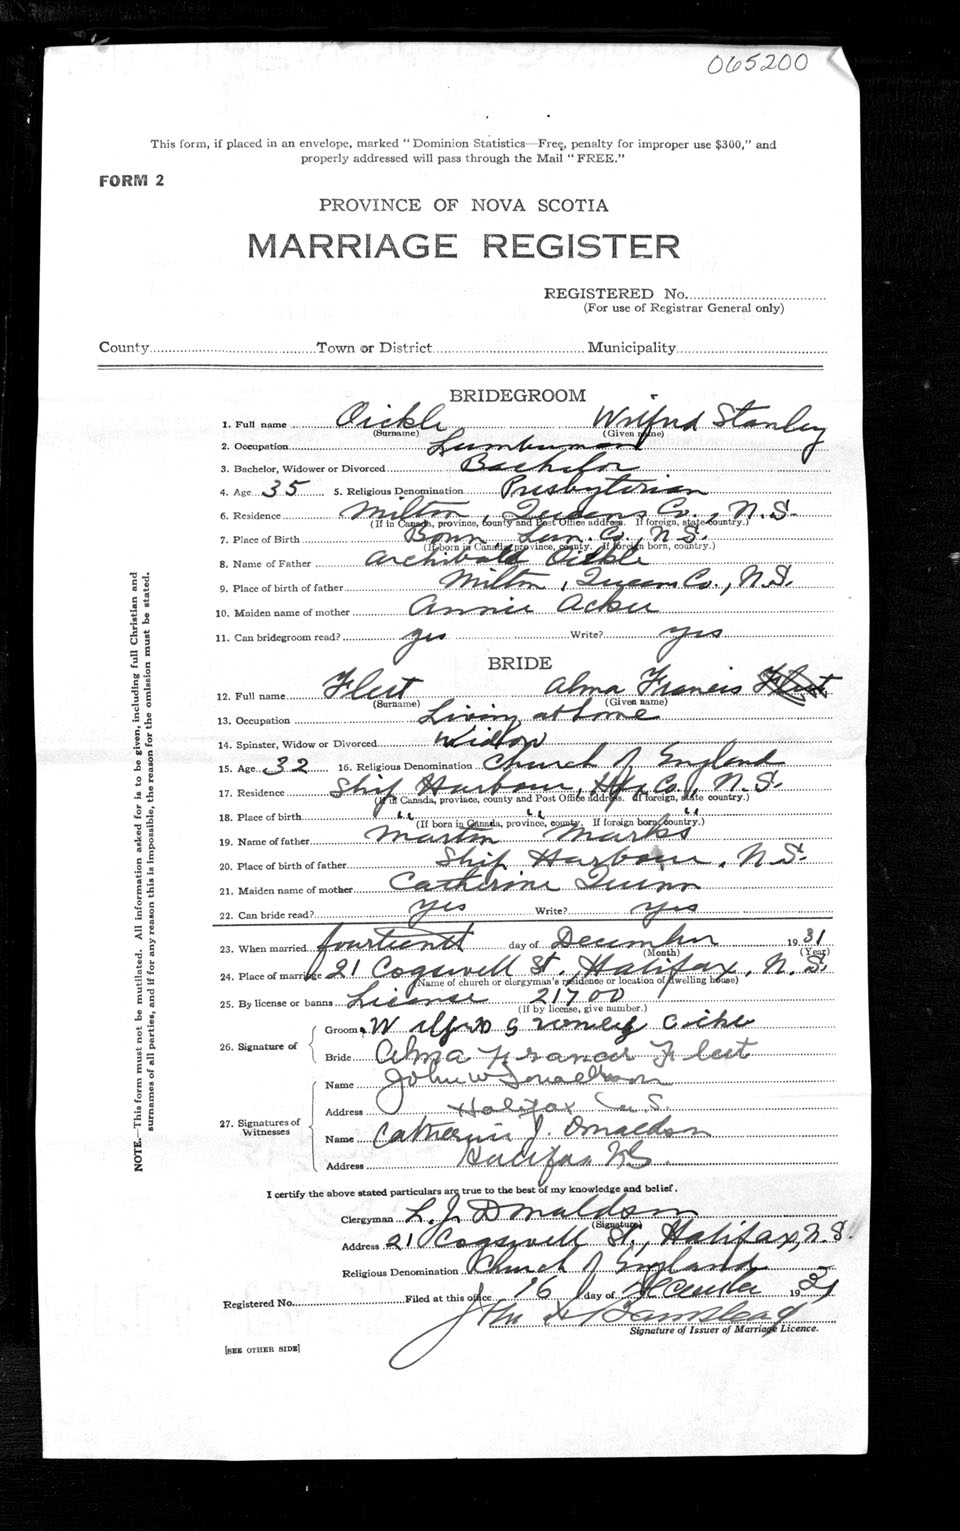 065200
This form, if placed in an envelope, marked "Dominion Statistics—Free, penalty for improper use $300," and
properly addressed will pass through the Mail "FREE."
FORM 2
PROVINCE OF NOVA SCOTIA
MARRIAGE REGISTER
REGISTERED No.
(For use of Registrar General only)
County Town or District Municipality
BRIDEGROOM
1. Full name Oickle Wilfred Stanley
(Surname) (Given name)
2. Occupation Lumberman
3. Bachelor, Widower or Divorced Bachelor
4. Age 35 5. Religious Denomination Presbyterian
6. Residence Milton, Queens Co., N.S.
(If in Canada, province, county and Post Office address. If foreign, state country.)
7. Place of Birth Born Lun. Co., N.S.
(If born in Canada, province, county. If foreign born, country.)
8. Name of Father Archibald Oickle
9. Place of birth of father Milton, Queens Co., N.S.
10. Maiden name of mother Annie Acker
11. Can bridegroom read? yes Write? yes
BRIDE
12. Full name Fleet Alma Francis
(Surname) (Given name)
13. Occupation Living at home
14. Spinster, Widow or Divorced Widow
15. Age 32 16. Religious Denomination Church of England
17. Residence Ship Harbour, Hfx Co., N.S.
(If in Canada, province, county and Post Office address. If foreign, state country.)
18. Place of birth " " "
(If born in Canada, province, county. If foreign born, country.)
19. Name of father Martin Marks
20. Place of birth of father Ship Harbour, N.S.
21. Maiden name of mother Catherine Quinn
22. Can bride read? yes Write? yes
23. When married fourteenth day of December 1931
(Month) (Year)
24. Place of marriage 21 Cogswell St., Halifax, N.S.
(Name of church or clergyman's residence or location of dwelling house)
25. By license or banns License 21700
(If by license, give number.)
26. Signature of
Groom Wilfred Stanley Oickle
Bride Alma Frances Fleet
27. Signatures of Witnesses
Name John W Donaldson
Address Halifax N.S.
Name Catherine J. Donaldson
Address Halifax N.S.
I certify the above stated particulars are true to the best of my knowledge and belief.
Clergyman L. J. Donaldson
(Signature)
Address 21 Cogswell St., Halifax, N.S.
Religious Denomination Church of England
Registered No. Filed at this office 16 day of December 1931
John H Barnstead
Signature of Issuer of Marriage Licence.
[SEE OTHER SIDE]
NOTE.—This form must not be mutilated. All information asked for is to be given, including full Christian and
surnames of all parties, and if for any reason this is impossible, the reason for the omission must be stated.